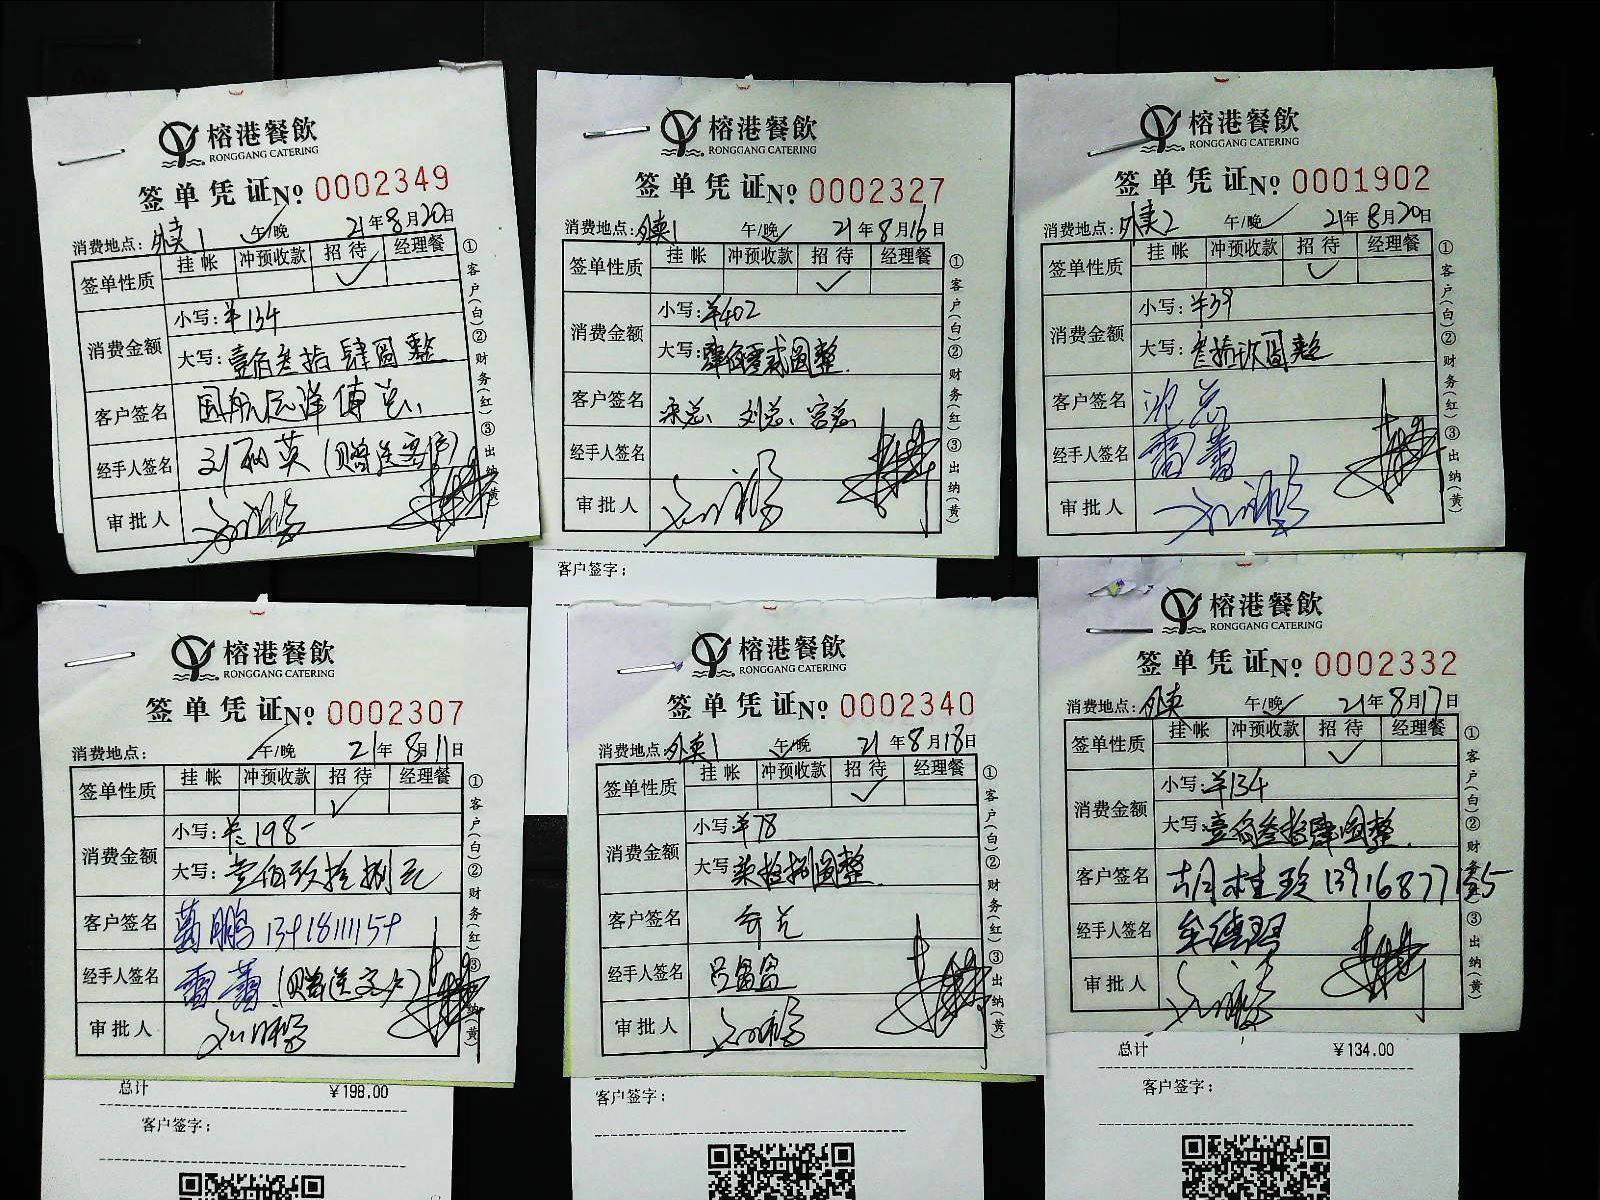 榕港餐飲
RONGGANG CATERING
签单凭证 No 0002349
消费地点：外卖1 午/晚 21年8月20日
签单性质 挂帐 冲预收款 招待 经理餐
消费金额
小写：¥134
大写：壹佰叁拾肆圆整
客户签名 国航远洋傅总
经手人签名 刘丽英（赠送客户）
审批人
①客户(白)②财务(红)③出纳(黄)
榕港餐飲
RONGGANG CATERING
签单凭证 No 0002327
消费地点：外卖1 午/晚 21年8月16日
签单性质 挂帐 冲预收款 招待 经理餐
消费金额
小写：¥402
大写：肆佰零贰圆整
客户签名 宋总、刘总、宫总
经手人签名
审批人
①客户(白)②财务(红)③出纳(黄)
客户签字：
榕港餐飲
RONGGANG CATERING
签单凭证 No 0001902
消费地点：外卖2 午/晚 21年8月20日
签单性质 挂帐 冲预收款 招待 经理餐
消费金额
小写：¥39
大写：叁拾玖圆整
客户签名 沈总
经手人签名 雷蕾
审批人
①客户(白)②财务(红)③出纳(黄)
榕港餐飲
RONGGANG CATERING
签单凭证 No 0002307
消费地点： 午/晚 21年8月11日
签单性质 挂帐 冲预收款 招待 经理餐
消费金额
小写：¥：198-
大写：壹佰玖拾捌元
客户签名 葛鹏
经手人签名 雷蕾（赠送客户）
审批人
①客户(白)②财务(红)③出纳(黄)
总计 ¥198.00
客户签字：
榕港餐飲
RONGGANG CATERING
签单凭证 No 0002340
消费地点：外卖1 午/晚 21年8月18日
签单性质 挂帐 冲预收款 招待 经理餐
消费金额
小写：¥78
大写：柒拾捌圆整
客户签名
经手人签名
审批人
①客户(白)②财务(红)③出纳(黄)
客户签字：
榕港餐飲
RONGGANG CATERING
签单凭证 No 0002332
消费地点：外卖 午/晚 21年8月17日
签单性质 挂帐 冲预收款 招待 经理餐
消费金额
小写：¥134
大写：壹佰叁拾肆圆整
客户签名 胡桂玲
经手人签名
审批人
①客户(白)②财务(红)③出纳(黄)
总计 ¥134.00
客户签字：